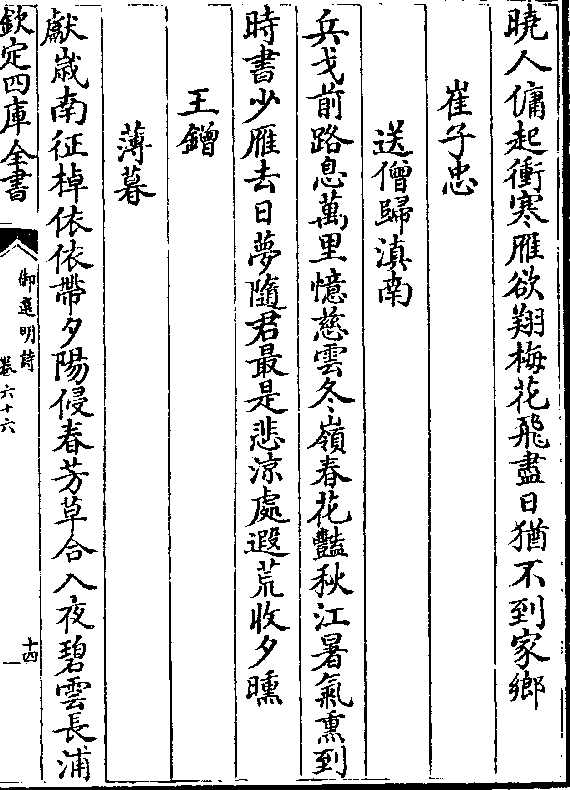 曉人傭起衝寒雁欲翔梅花飛盡日猶不到家鄉
崔子忠
送僧歸滇南
兵戈前路息萬里憶慈雲冬嶺春花豔秋江暑氣熏到
時書少雁去日夢隨君最是悲涼處遐荒收夕曛
王鏳
薄暮
獻歲南征棹依依帶夕陽侵春芳草合入夜碧雲長浦
欽定四庫全書
御選明詩
卷六十六
十四